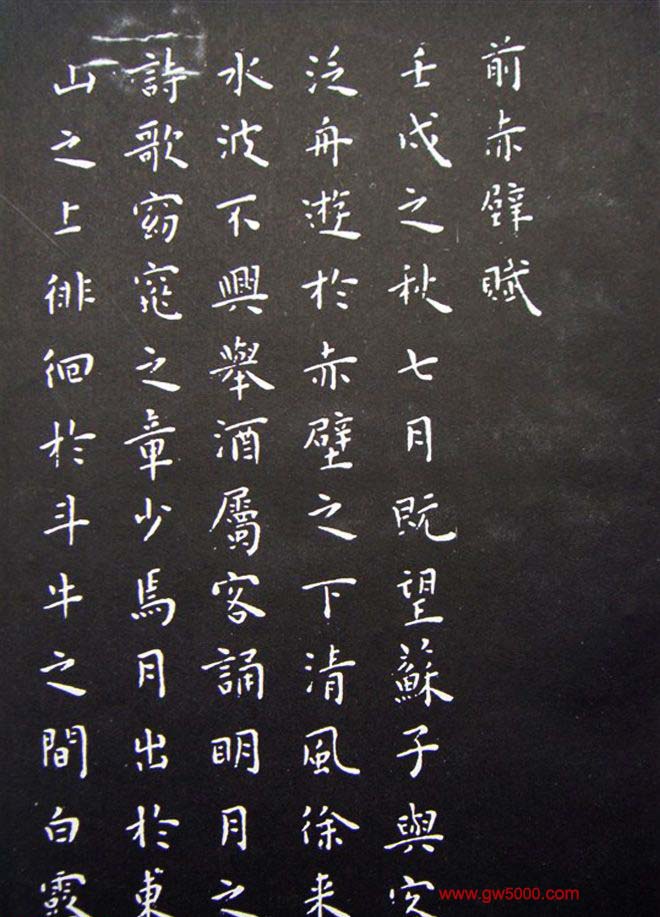 前赤壁賦
壬戌之秋七月既望蘇子與客
泛舟遊於赤壁之下清風徐来
水波不興舉酒屬客誦明月之
詩歌窈窕之章少焉月出於東
山之上徘徊於斗牛之間白露
www.gw5000.com